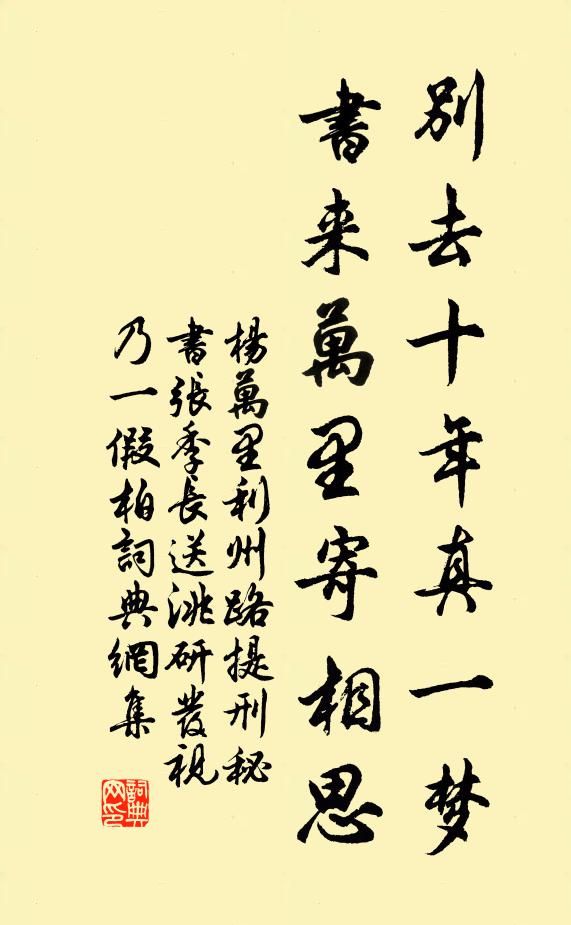 别去十年真一梦
書来萬里寄相思
楊萬里利州路提刑秘
書張季長送洮研發視
乃一假柏詞典網集
詞典
网印